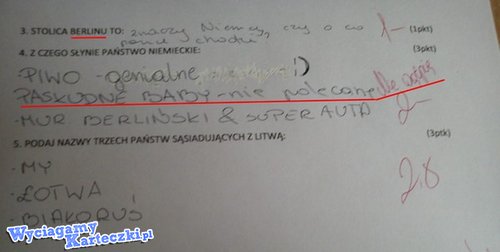 3. STOLICA BERLINU TO: znaczy Niemcy, czy o co (1pkt) 1-
panie chodzi
4. Z CZEGO SŁYNIE PAŃSTWO NIEMIECKIE: (3pkt)
PIWO - genialne :)
PASKUDNE BABY - nie polecane Nie
- MUR BERLIŃSKI & SUPER AUTA 2-
5. PODAJ NAZWY TRZECH PAŃSTW SĄSIADUJĄCYCH Z LITWĄ: (3ptk)
- MY 2,8
- ŁOTWA
- BIAŁORUŚ
Wyciagamy
Karteczki.pl